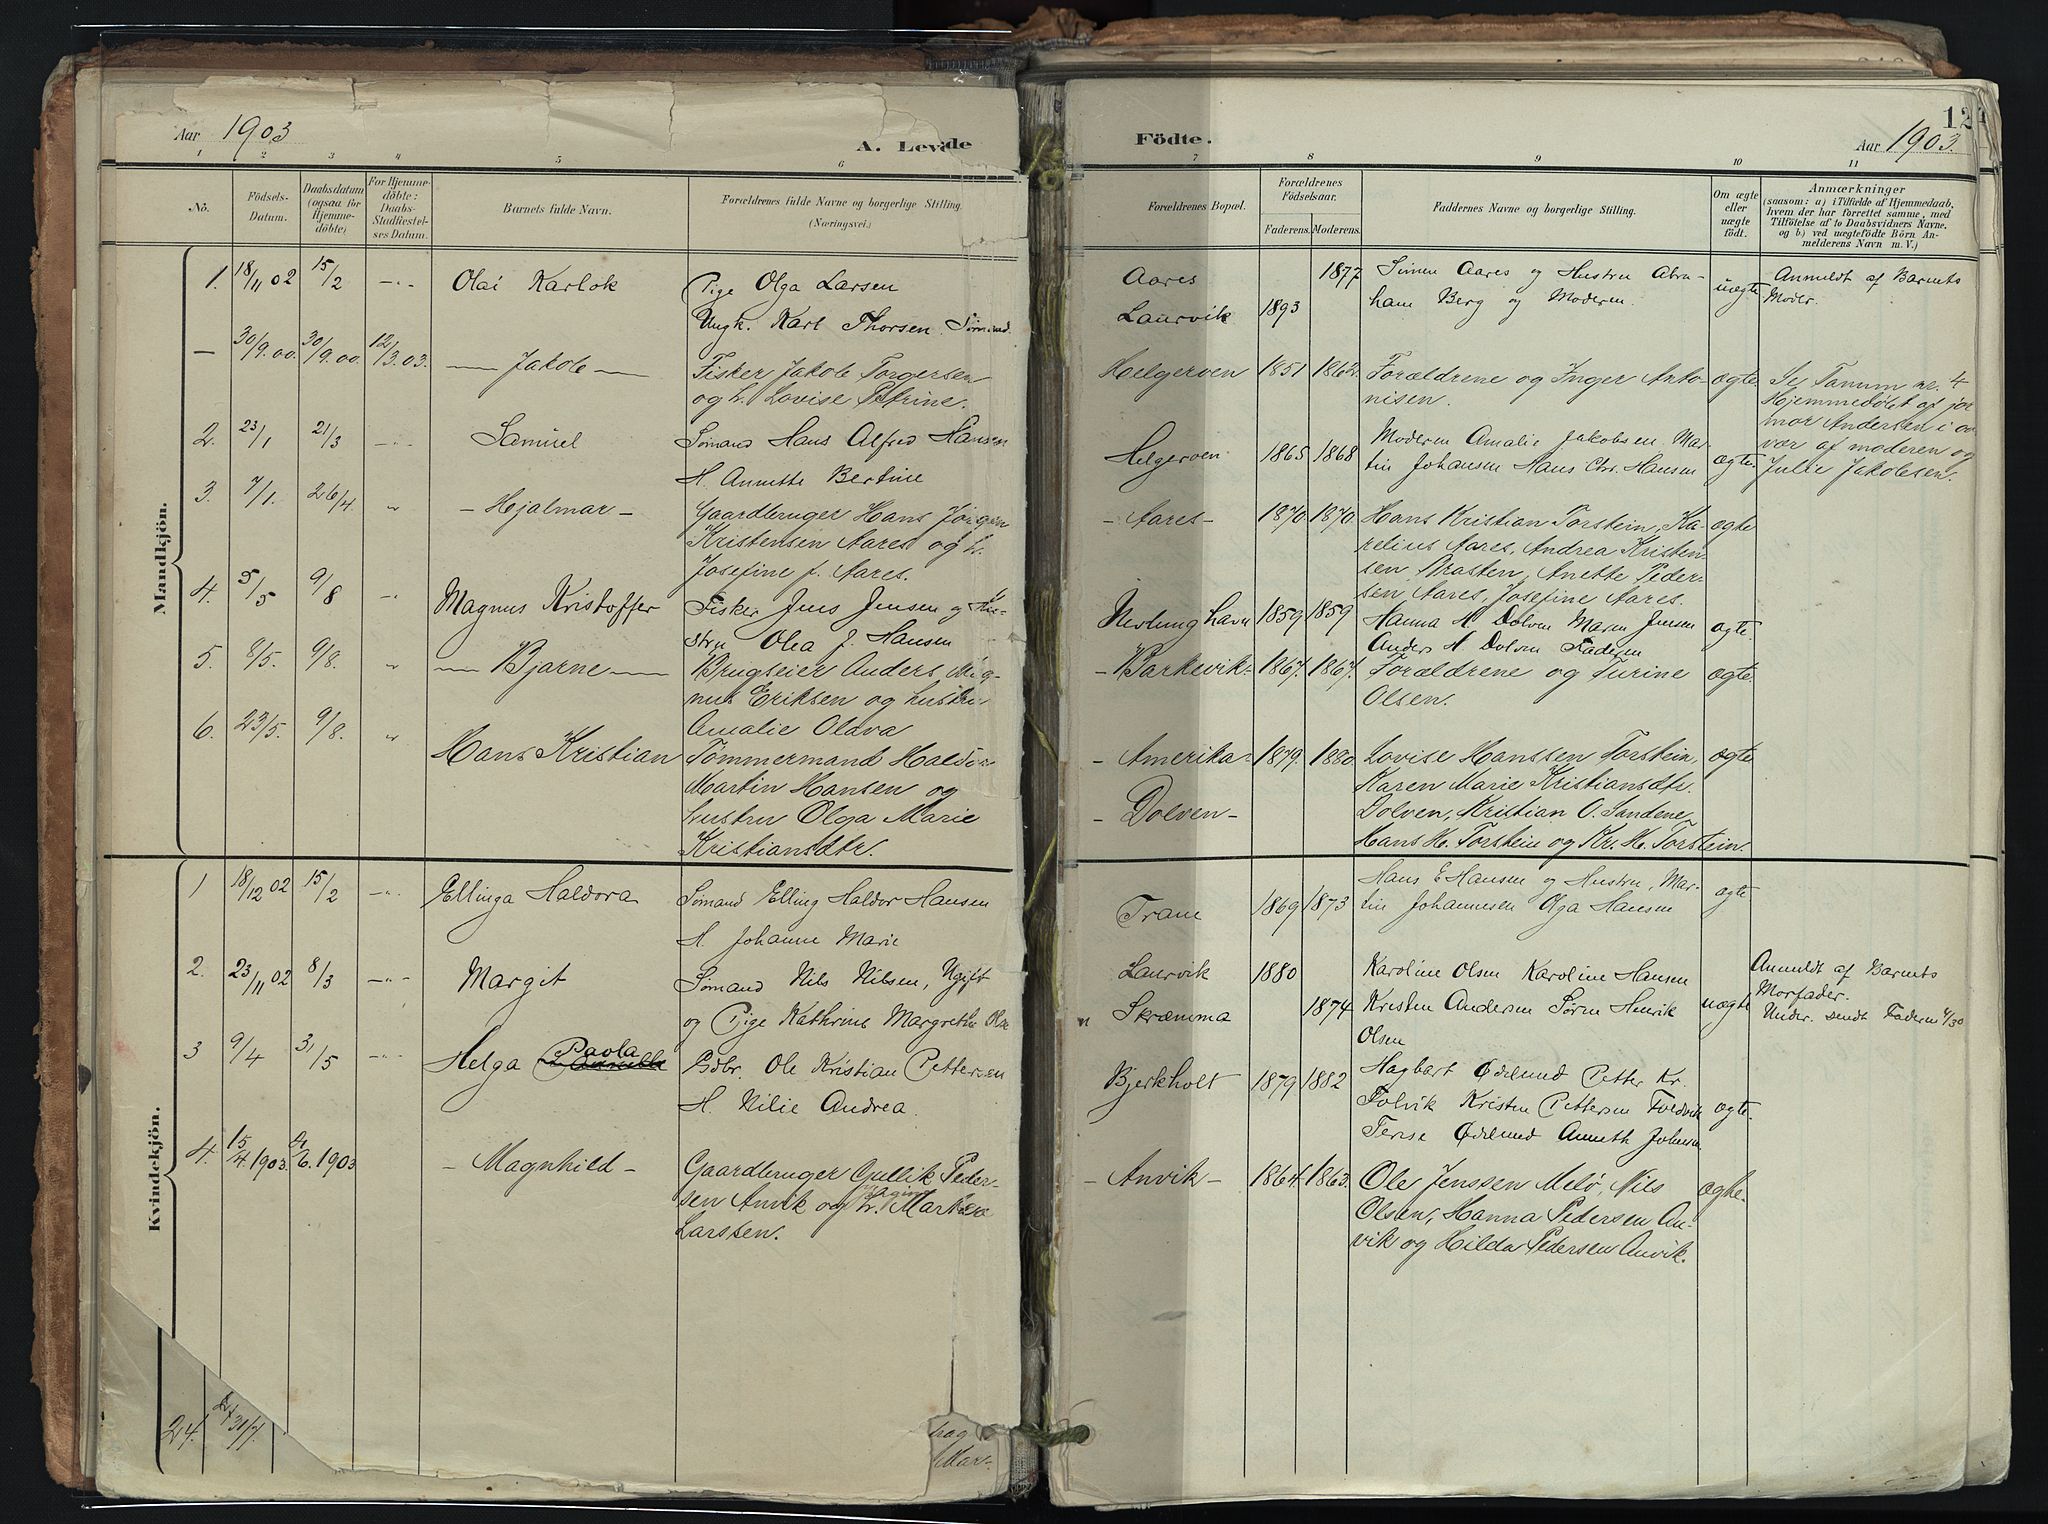 Aar 1903
A. Levende
1 2 3 4 5 6
No.
Födsels-
Datum.
Daabsdatum
(ogsaa for
Hjemme-
döbte)
For Hjemme-
döbte:
Daabs-
Stadfæstel-
ses Datum.
Barnets fulde Navn.
Forældrenes fulde Navne og borgerlige Stilling.
(Næringsvei.)
Mandkjön.
1. 18/11 02 15/2 -"- Olai Karlok Pige Olga Larsen
Ungk. Karl Thorsen. Sømand
— 30/9.00. 30/9.00. 12/3.03. — Jakob — Fisker Jakob Torgersen
og h. Lovise Petrine.
2. 23/1 21/3 -"- Samuel Sømand Hans Alfred Hansen
H. Annette Bertine
3. 7/1. 26/4. " - Hjalmar - Gaardbruger Hans Jørgen
Kristensen Aares og h.
Josefine f. Aares.
4. 5/5 9/8 " Magnus Kristoffer Fisker Jens Jensen og Hu-
stru Olea f. Hansen
5. 8/5. 9/8. " — Bjarne — Brugseier Anders Mag-
nus Eriksen og hustru
Amalie Olava
6. 23/5. 9/8. " Hans Kristian Tømmermand Haldor
Martin Hansen og
hustru Olga Marie
Kristiansdtr.
Kvindekjön.
1 18/12 02 15/2 -"- Ellinga Haldora Sømand Elling Haldor Hansen
H. Johanne Marie
2. 23/11 02 8/3 -"- Margit Sømand Nils Nilsen, Ugift
og Pige Kathrine Margrethe Olse
3 9/4 31/5 -"- Helga Paola Gdbr. Ole Kristian Pettersen
H. Nilie Andrea.
4. 15/4.1903. /6.1903 - Magnhild - Gaardbruger Gullik Peder-
sen Anvik og h. Maren
Larssen.
24. 31/7.
Mar-
Födte.
124
Aar 1903.
7 8 9 10 11
Forældrenes Bopæl.
Forældrenes
Födselsaar.
Faderens. Moderens.
Faddernes Navne og borgerlige Stilling.
Om ægte
eller
uægte
födt.
Anmærkninger
(saasom: a) i Tilfælde af Hjemmedaab,
hvem der har forrettet samme, med
Tilföielse af to Daabsvidners Navne.
og b) ved uægtefödte Börn An-
melderens Navn m. V.)
Aares 1877 Simen Aares og Hustru Abra- uægte Anmeldt af Barnets
Laurvik 1893 ham Berg og Moderen. Moder.
Helgeroen 1851 1862. Forældrene og Inger Anto- ægte Se Tanum nr. 4
nisen. Hjemmedøbt af jor
mor Andersen i ov
Helgeroen 1865 1868 Moderen Amalie Jakobsen. Mar- ægte. vær af moderen og
tin Johansen Hans Chr. Hansen Julie Jakobsen.
- Aares - 1870. 1870. Hans Kristian Torstein, Ka- ægte
relius Aares, Andrea Kristen-
sen Brasten, Anette Peder-
sen Aares, Josefine Aares.
Nevlunghavn 1859 1859 Hanna H Dolven Maren Jensen ægte.
Anders H Dolven Faderen
- Barkevik - 1867. 1867. Forældrene og Turine ægte.
Olsen.
- Amerika - 1879. 1880. Lovise Hanssen Torstein, ægte
Karen Marie Kristiansdtr.
- Dolven - Dolven, Kristian O. Sandene
Hans H. Torstein og Kr. H. Torstein.
Hans E Hansen og Hustru, Mar- ægte
Tram 1869 1873 tin Johannesen Olga Hansen
Laurvik 1880 Karoline Olsen Karoline Hansen Anmeldt af Barnets
Skræmma 1874 Kristen Andersen Søren Henrik uægte Morfader.
Olsen Under. sendt Faderen 4/30
Bjerkholt 1879 1882 Hagbart Ødelund Petter Kr.
Folvik Kristen Pettersen Foldvik ægte.
Terese Ødelund Anneth Johnsen
- Anvik - 1864. 1863. Ole Jenssen Melø, Nils ægte.
Olsen, Hanna Pedersen An-
vik og Hilda Pedersen Anvik.